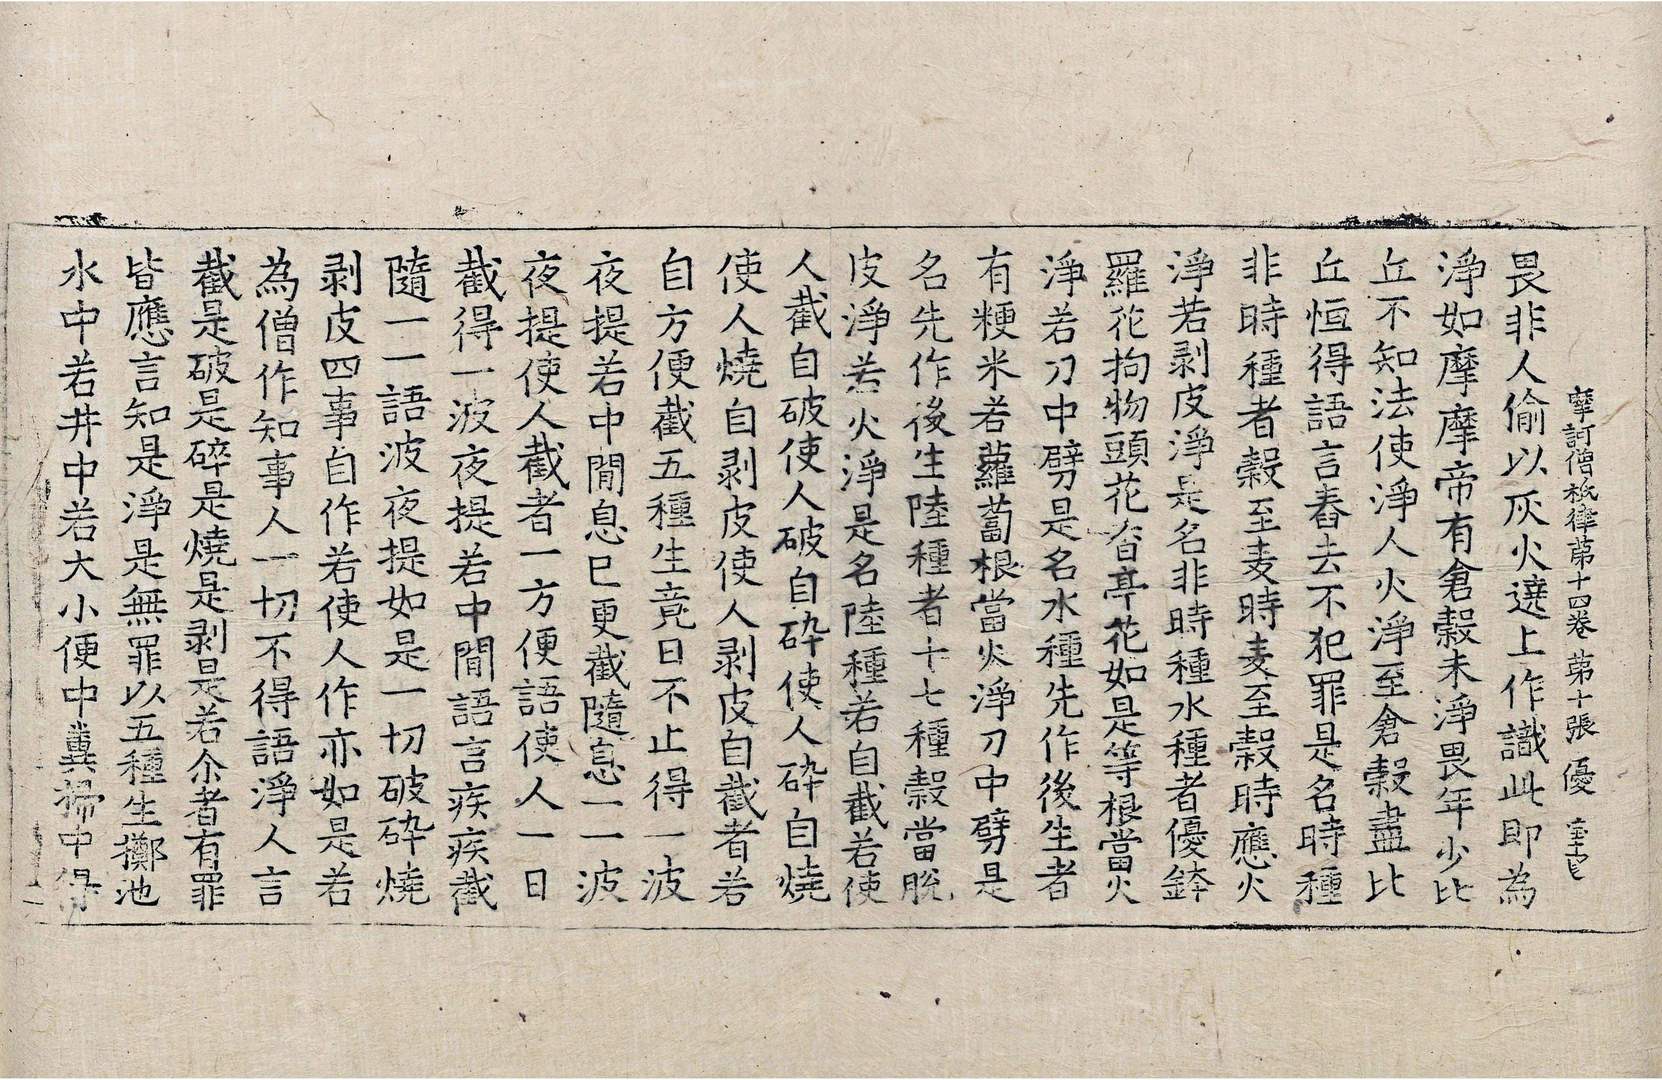 摩訶僧祇律第十四卷 第十張 優
畏非人偷以灰火遶上作識此即為
淨如摩摩帝有倉穀未淨畏年少比
丘不知法使淨人火淨至倉穀盡比
丘恒得語言舂去不犯罪是名時種
非時種者穀至麦時麦至穀時應火
淨若剥皮淨是名非時種水種者優鉢
羅花拘物頭花香亭花如是等根當火
淨若刀中劈是名水種先作後生者
有粳米若蘿蔔根當火淨刀中劈是
名先作後生陸種者十七種穀當脫
皮淨若火淨是名陸種若自截若使
人截自破使人破自碎使人碎自燒
使人燒自剥皮使人剥皮自截者若
自方便截五種生竟日不止得一波
夜提若中間息已更截隨息一一波
夜提使人截者一方便語使人一日
截得一波夜提若中間語言疾疾截
隨一一語波夜提如是一切破碎燒
剥皮四事自作若使人作亦如是若
為僧作知事人一切不得語淨人言
截是破是碎是燒是剥是若尒者有罪
皆應言知是淨是無罪以五種生擲池
水中若井中若大小便中糞掃中得